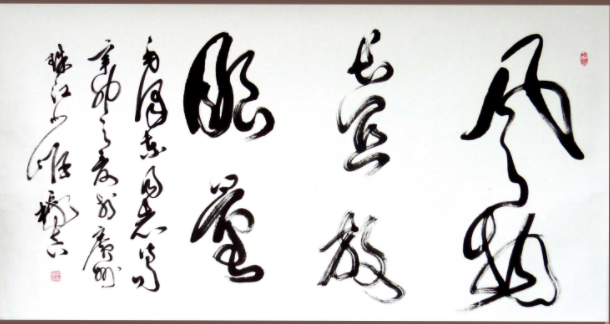 风物
长宜放
眼量
毛泽东同志诗句
辛卯之夏于广州
珠江